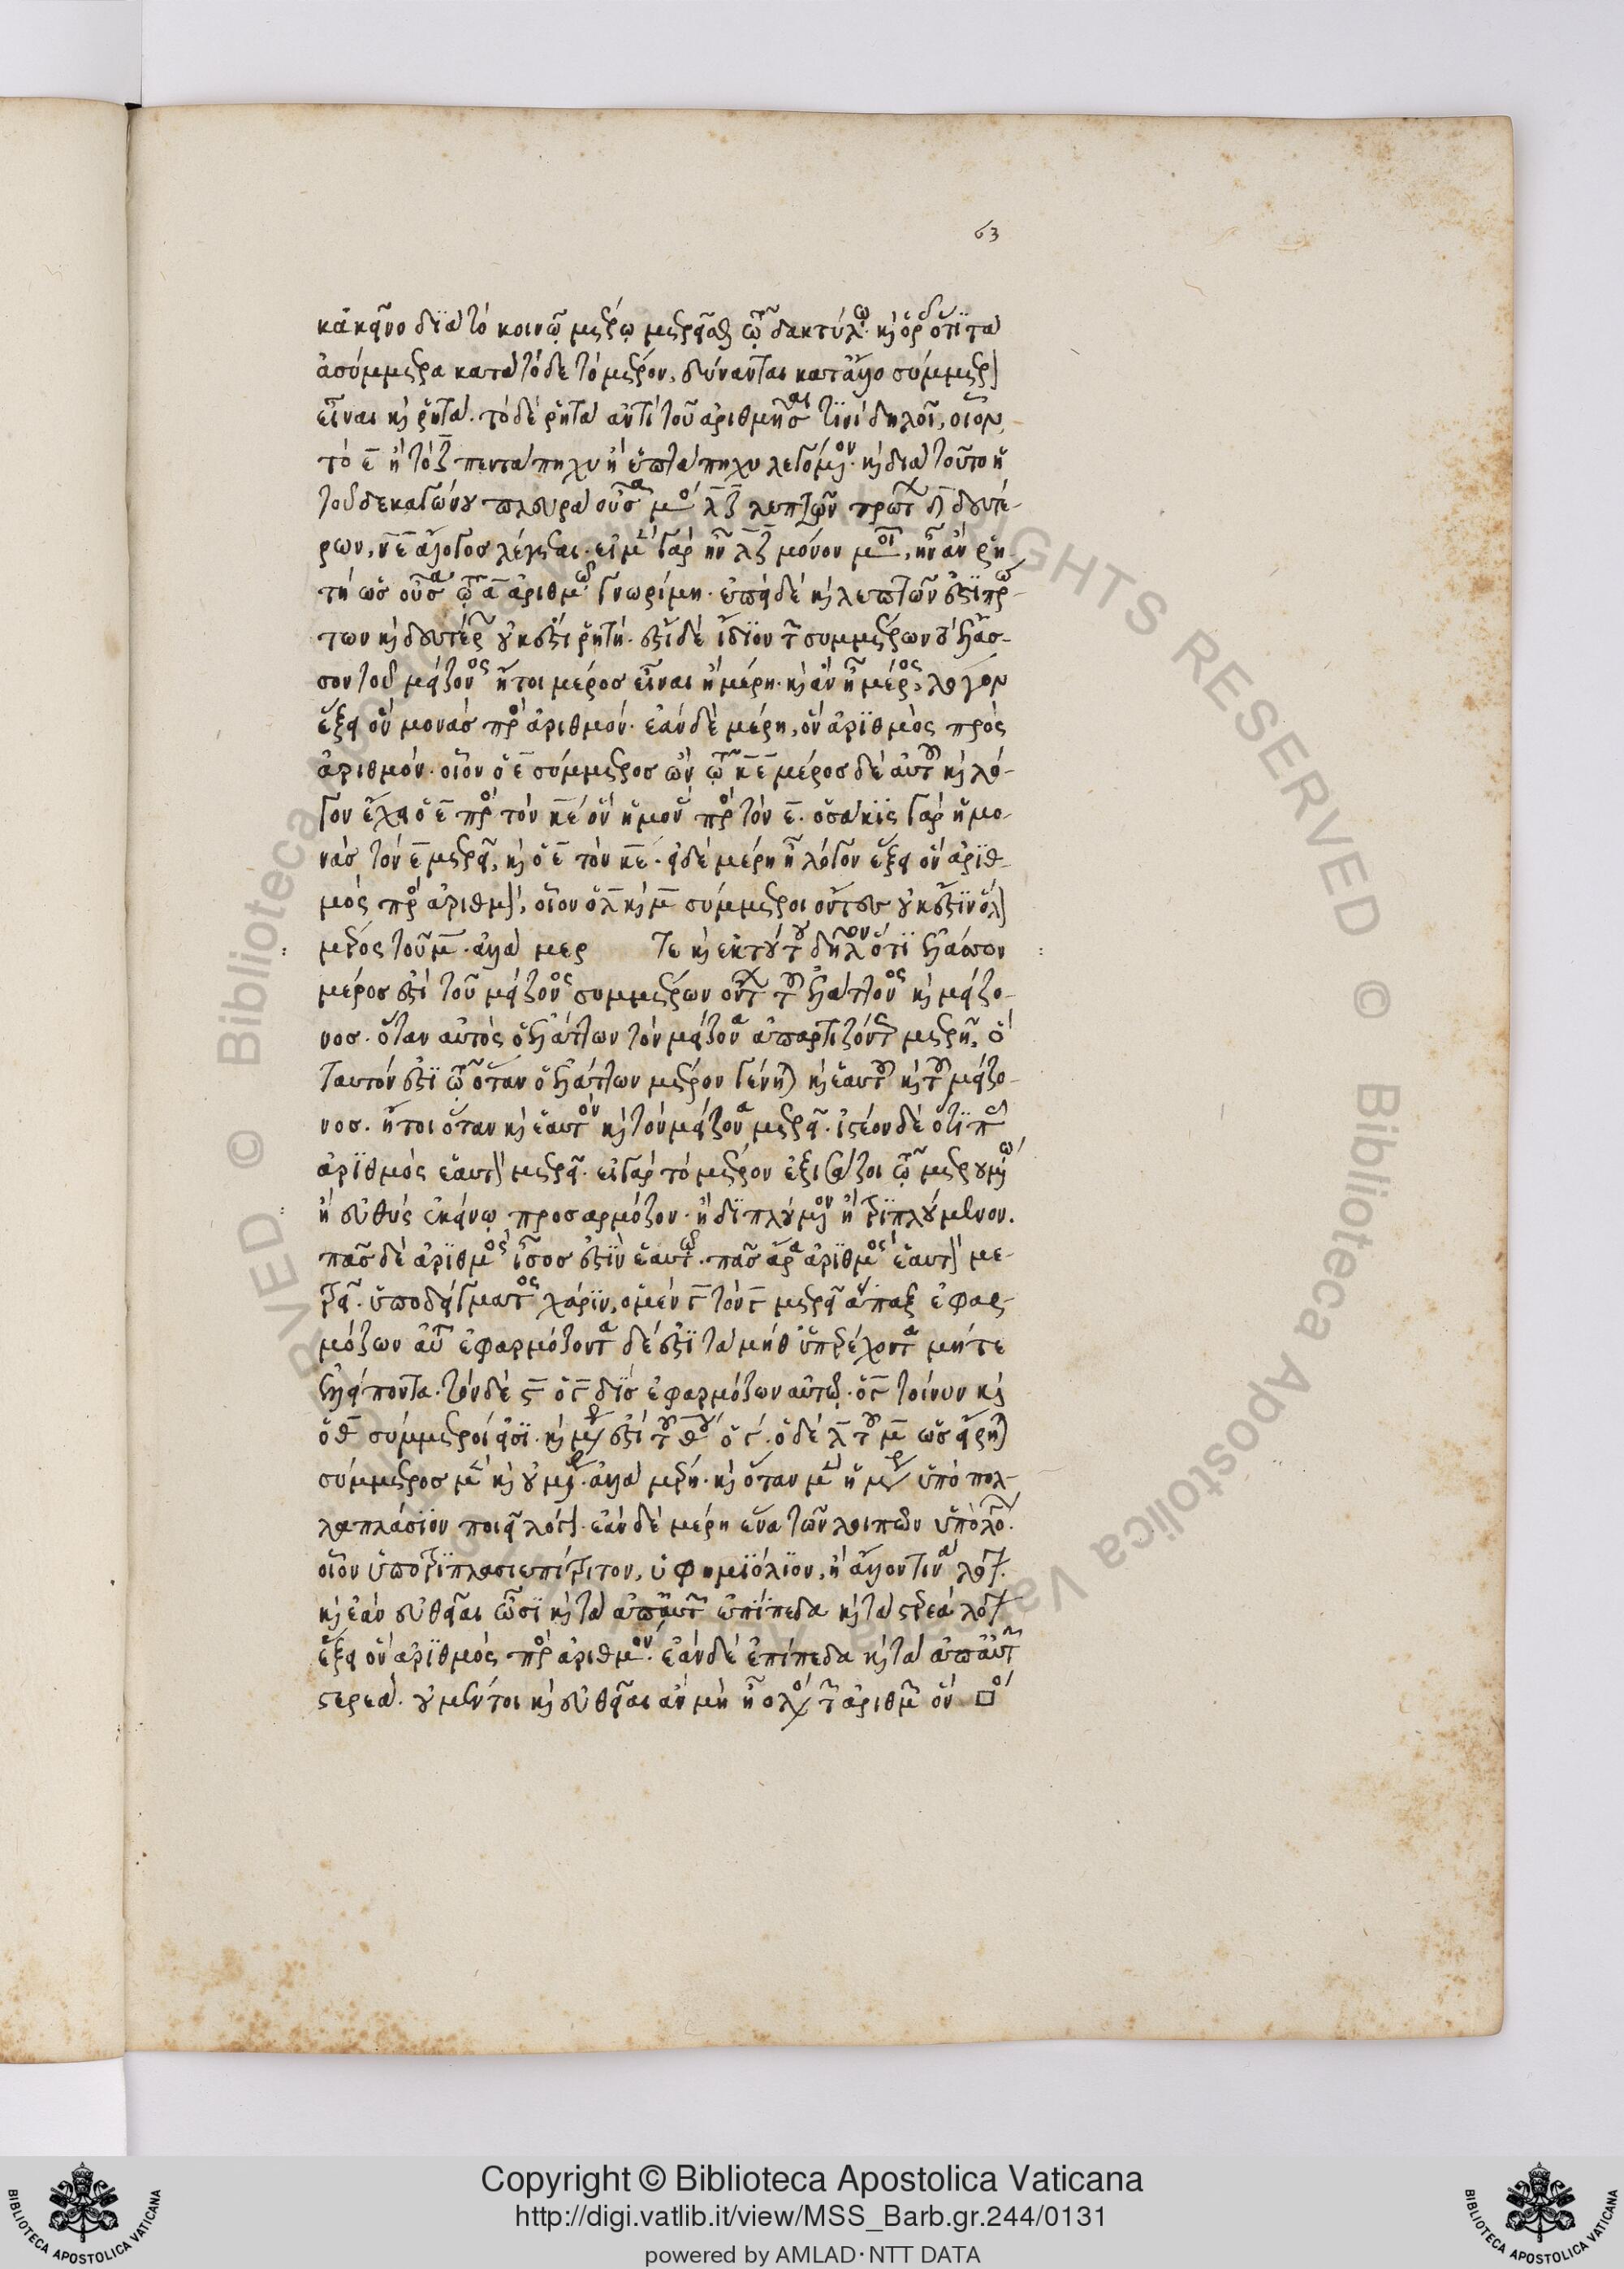 63
κἀκεῖνο διὰ τὸ κοινῷ μέτρῳ μετρεῖσθαι τῷ δακτύλῳ· καὶ ὅρα ὅτι τὰ
ἀσύμμετρα κατὰ τόδε τὸ μέτρον, δύνανται κατ' ἄλλο σύμμετρα
εἶναι καὶ ῥητά. τὸ δὲ ῥητὰ ἀντὶ τοῦ ἀριθμῆσαι τινὶ δηλοῖ, οἷον
τὸ ε̅ ἢ τὸ ζ̅ πενταπηχυ ἢ ἑπταπηχυ λεγόμενον· καὶ διὰ τοῦτο ἡ
τοῦ δεκαγώνου πλευρὰ οὖσα μο λ̅ζ̅ λεπτῶν πρώτων δ̅ δευτέ-
ρων, ν̅ε̅ ἄλογος λέγεται· εἰ μὲν γὰρ ἦν λ̅ζ̅ μόνον μοι, ἦν ἂν ῥη-
τὴ ὡς οὖσα τῷ α̅ ἀριθμῷ γνωρίμη· ἐπεὶ δὲ καὶ λεπτῶν ἐστὶ πρώ-
των καὶ δευτέρων οὐκ ἔστι ῥητή. ἔστι δὲ ἴδιον τῶν συμμέτρων τὸ ἔλασ-
σον τοῦ μείζονος ἤτοι μέρος εἶναι ἢ μέρη. καὶ ἂν ᾖ μέρος, λόγον
ἕξει ὃν μονὰς πρὸς ἀριθμόν· ἐὰν δὲ μέρη, ὃν ἀριθμὸς πρὸς
ἀριθμόν. οἷον ὁ ε̅ σύμμετρος ὢν τῷ κ̅ε̅ μέρος δὲ αὐτοῦ καὶ λό-
γον ἔχει ὁ ε̅ πρὸς τὸν κ̅ε̅ ὃν ἡ μονὰς πρὸς τὸν ε̅. ὁσάκις γὰρ ἡ μο-
νὰς τὸν ε̅ μετρεῖ, καὶ ὁ ε̅ τὸν κ̅ε̅. εἰ δὲ μέρη ᾖ λόγον ἕξει ὃν ἀριθ-
μὸς πρὸς ἀριθμόν, οἷον ὁ λ̅ καὶ μ̅ σύμμετροι ὄντες οὐκ ἔστιν ὁ λ̅
μέρος τοῦ μ̅. ἀλλὰ μερ τε καὶ ἐκ τούτου δῆλον ὅτι ἔλασσον
μέρος ἐστὶ τοῦ μείζονος συμμέτρων ὄντων τοῦ ἐλάττονος καὶ μείζο-
νος. ὅταν αὐτὸς ὁ ἐλάττων τὸν μείζονα ἀπαρτιζόντως μετρῇ, ὃ
ταυτόν ἐστι τῷ ὅταν ὁ ἐλάττων μέτρον γένηται καὶ ἑαυτοῦ καὶ τοῦ μείζο-
νος. ἤτοι ὅταν καὶ ἑαυτὸν καὶ τὸν μείζονα μετρεῖ. ἰστέον δὲ ὅτι πᾶς
ἀριθμὸς ἑαυτὸν μετρεῖ. εἰ γὰρ τὸ μέτρον ἐξισάζοι τῷ μετρουμένῳ
ἢ εὐθὺς ἐκείνῳ προσαρμόζον. ἢ διπλούμενον ἢ τριπλούμενον.
πᾶς δὲ ἀριθμὸς ἴσος ἐστὶν ἑαυτῷ. πᾶς ἄρα ἀριθμὸς ἑαυτὸν με-
τρεῖ. ὑποδείγματος χάριν, ὁ μὲν γ̅ τὸν γ̅ μετρεῖ ἅπαξ ἐφαρ-
μόζων αὐτῷ ἐφαρμόζοντα δέ ἐστι τὰ μήθ' ὑπερέχοντα μήτε
ἐλλείποντα. τὸν δὲ ϛ̅ ὁ γ̅ δὶς ἐφαρμόζων αὐτῷ. ὁ γ̅ τοίνυν καὶ
ὁ θ̅ σύμμετροί εἰσι. καὶ μέρος ἐστὶ τοῦ θ̅ ὁ γ̅. ὁ δὲ λ̅ τοῦ μ̅ ὡς εἴρηται
σύμμετρος μὲν καὶ οὐ μέρος. ἀλλὰ μέρη. καὶ ὅταν μὲν ᾖ μέρος ὑποπολ-
λαπλάσιον ποιεῖ λόγον. ἐὰν δὲ μέρη ἕνα τῶν λοιπῶν ὑπολόγων.
οἷον ὑποτριπλασιεπίτριτον, ὑφημιόλιον, ἢ ἄλλον τινὰ λόγον.
καὶ ἐὰν εὐθεῖαι ὦσι καὶ τὰ ἀπ' αὐτῶν ἐπίπεδα καὶ τὰ στερεὰ λόγον
ἕξει ὃν ἀριθμὸς πρὸς ἀριθμόν. ἐὰν δὲ ἐπίπεδα καὶ τὰ ἀπ' αὐτῶν
στερεά. οὐ μέντοι καὶ εὐθεῖαι ἂν μὴ ᾖ ὁ λόγος τῶν ἀριθμῶν ὃν □ος
Copyright © Biblioteca Apostolica Vaticana
http://digi.vatlib.it/view/MSS_Barb.gr.244/0131
powered by AMLAD·NTT DATA